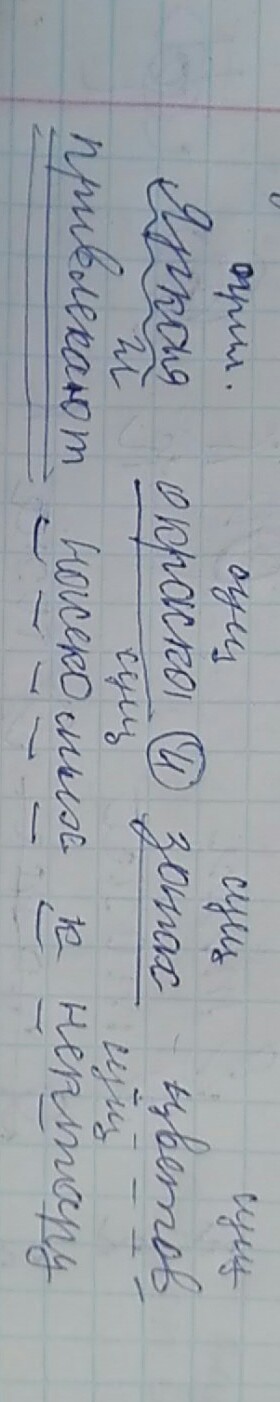 прил. сущ сущ сущ
Яркая окраска и запах цветов
гл сущ сущ
привлекают насекомых к нектару